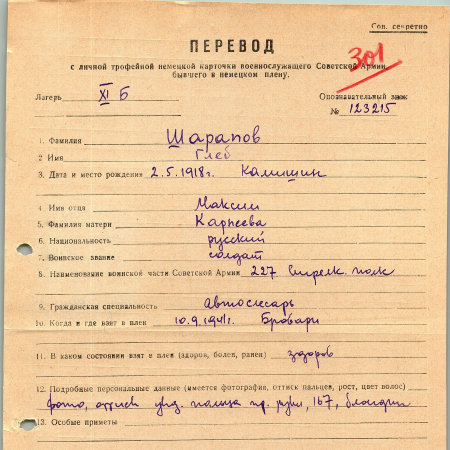 Сов. секретно
ПЕРЕВОД
301
с личной трофейной немецкой карточки военнослужащего Советской Армии,
бывшего в немецком плену.
Лагерь XI Б
Опознавательный знак
№ 123215
1. Фамилия Шарапов
2 Имя Глеб
3. Дата и место рождения 2.5.1918г. Камишин
4. Имя отца Максим
5. Фамилия матери Карпеева
6. Национальность русский
7. Воинское звание солдат
8. Наименование воинской части Советской Армии 227 стрелк. полк
9. Гражданская специальность автослесарь
10. Когда и где взят в плен 10.9.1941г. Бровари
11. В каком состоянии взят в плен (здоров, болен, ранен) здоров
12. Подробные персональные данные (имеется фотография, оттиск пальцев, рост, цвет волос)
фото, оттиск указ. пальца пр. руки, 167, блондин
13. Особые приметы